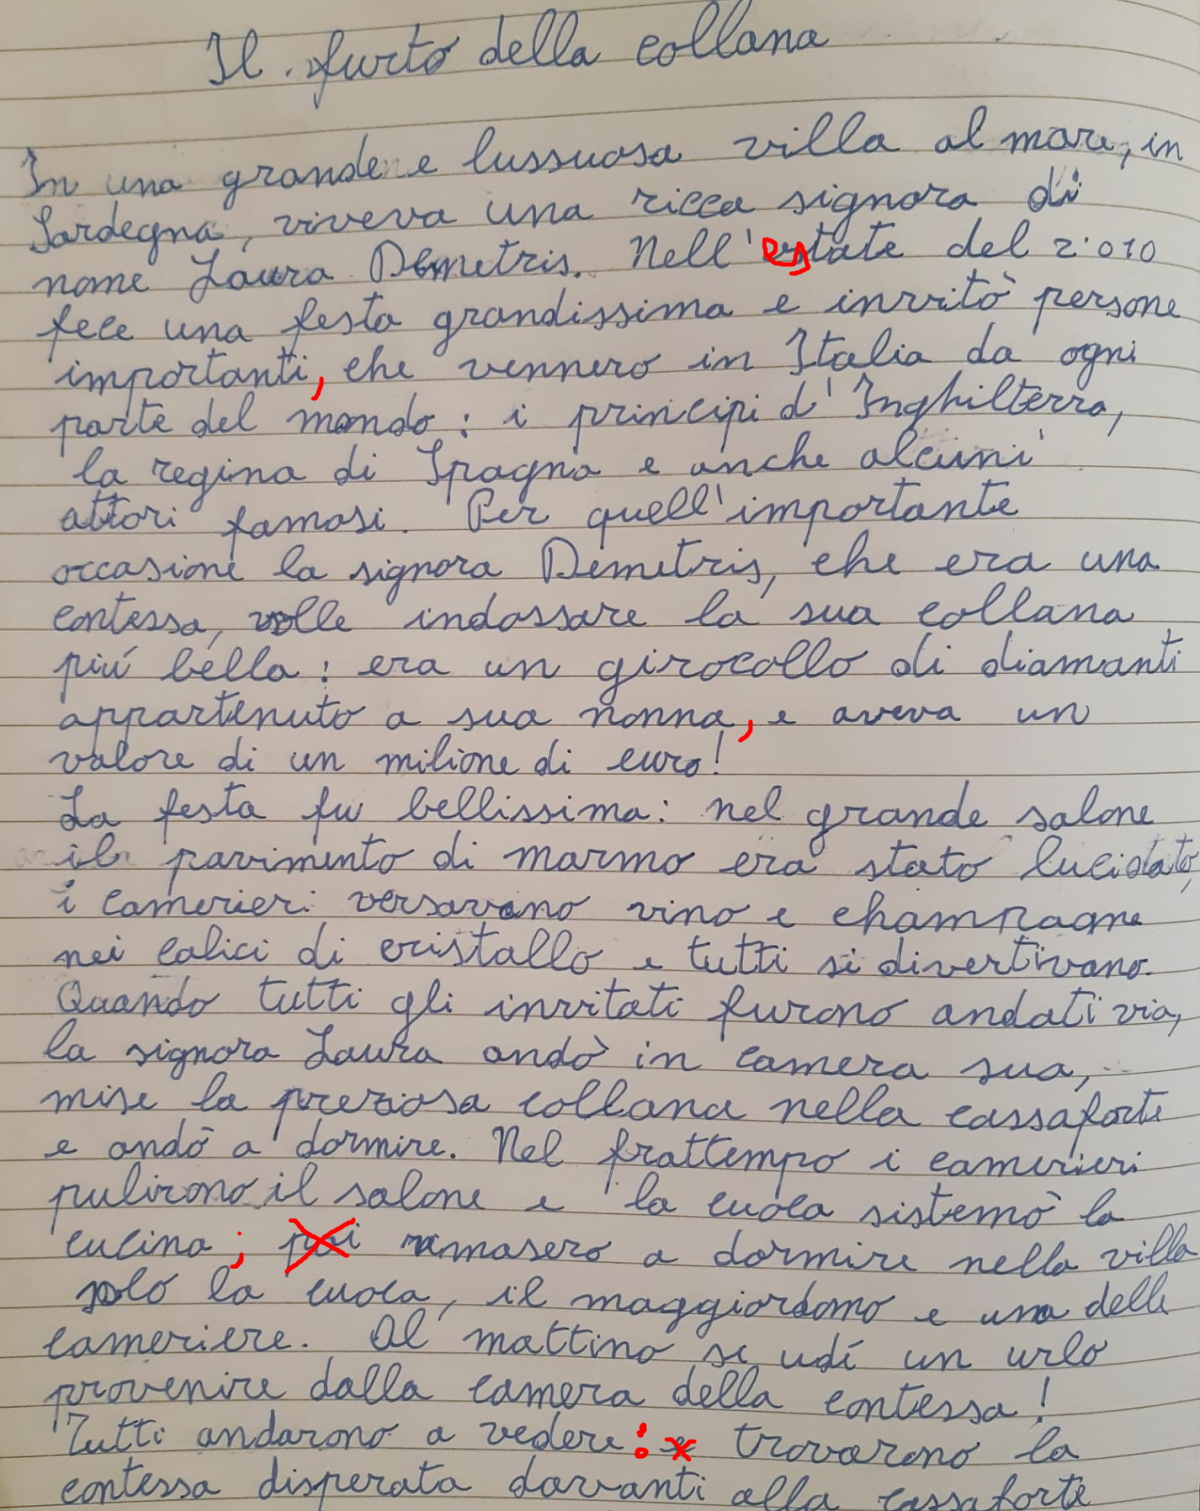 Il furto della collana
In una grande e lussuosa villa al mare, in
Sardegna, viveva una ricca signora di
nome Laura Demetris. Nell'estate del 2.010
fece una festa grandissima e invitò persone
importanti, che vennero in Italia da ogni
parte del mondo: i principi d'Inghilterra,
la regina di Spagna e anche alcuni
attori famosi. Per quell'importante
occasione la signora Demetris, che era una
contessa, volle indossare la sua collana
piú bella: era un girocollo di diamanti
appartenuto a sua nonna, e aveva un
valore di un milione di euro!
La festa fu bellissima: nel grande salone
il pavimento di marmo era stato lucidato,
i camerieri versavano vino e champagne
nei calici di cristallo e tutti si divertivano.
Quando tutti gli invitati furono andati via,
la signora Laura andò in camera sua,
mise la preziosa collana nella cassaforte
e andò a dormire. Nel frattempo i camerieri
pulirono il salone e la cuoca sistemò la
cucina; poi rimasero a dormire nella villa
solo la cuoca, il maggiordomo e una delle
cameriere. Al mattino si udí un urlo
provenire dalla camera della contessa!
Tutti andarono a vedere: e trovarono la
contessa disperata davanti alla cassaforte